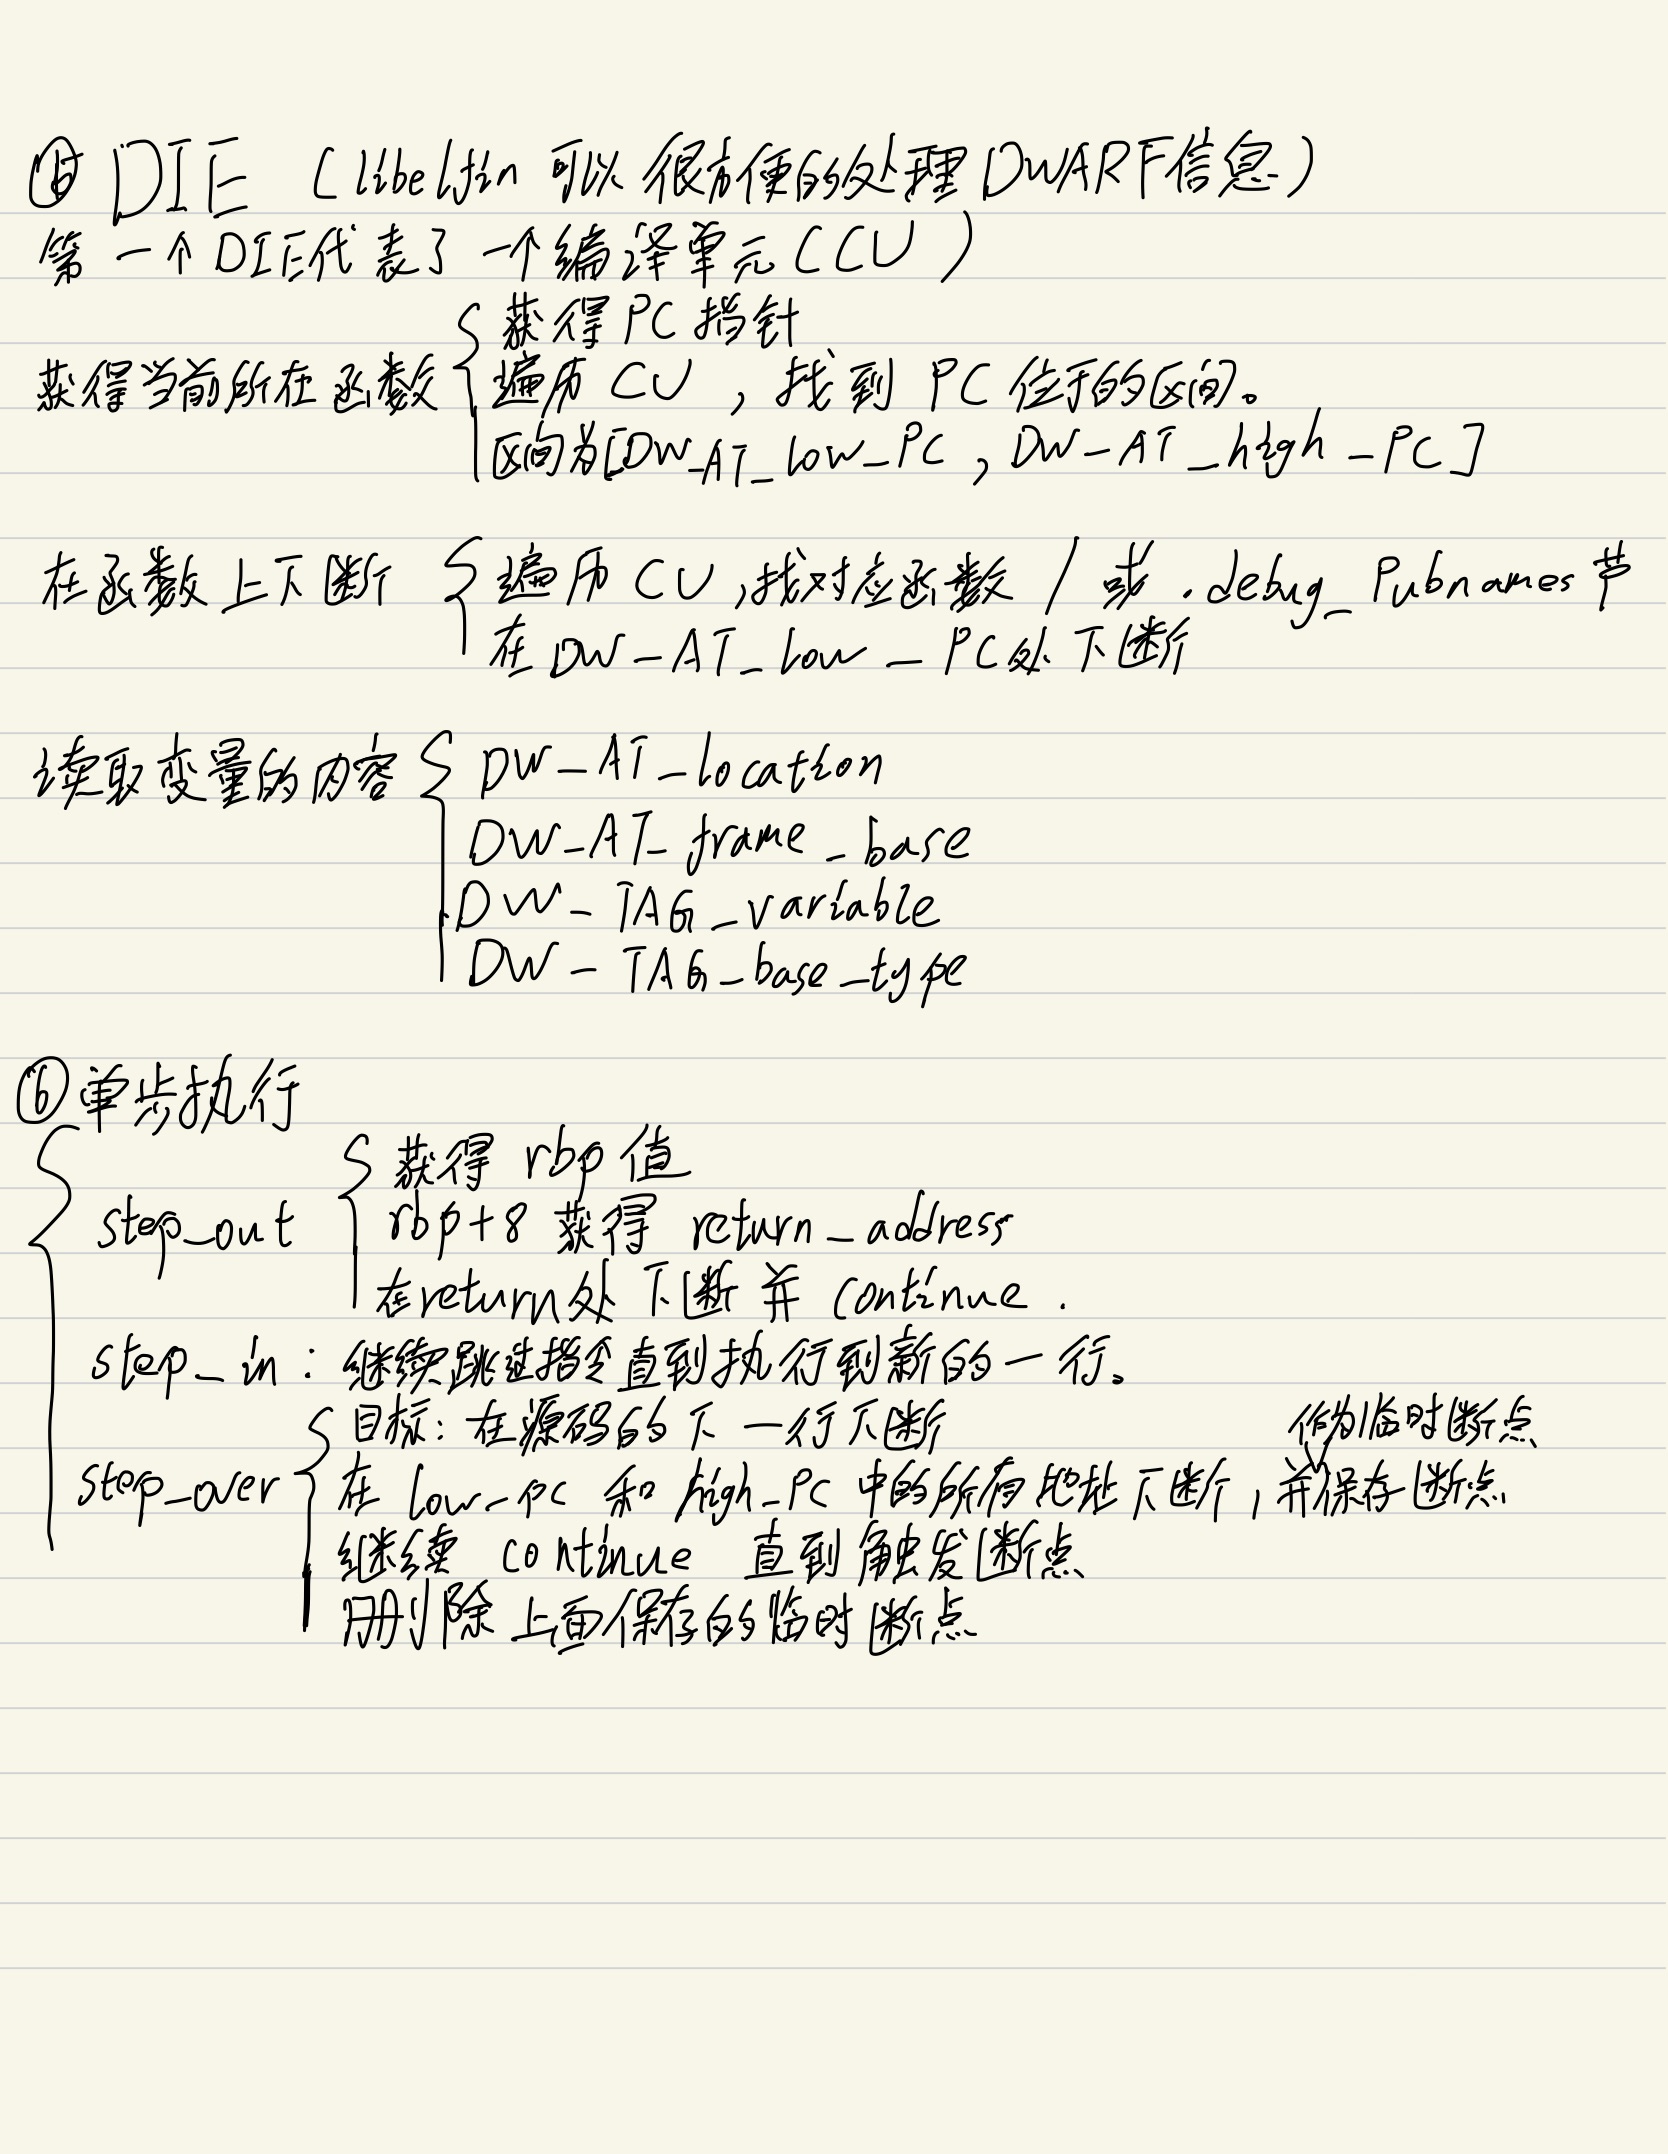 DIE (libelfin 可以很方便的处理DWARF信息)
第一个DIE代表了一个编译单元(CCU)
获得PC指针
获得当前所在函数 遍历 CU ,找到 PC 位于的区间。
区间为[DW_AT_low_PC , DW_AT_high_PC]
在函数上下断 遍历 CU ,找对应函数 / 或 .debug_Pubnames 节
在 DW_AT_low_PC处下断
读取变量的内容 DW_AT_location
DW_AT_frame_base
DW_TAG_variable
DW_TAG_base_type
⑥单步执行
获得 rbp 值
step_out rbp+8 获得 return_address
在return处下断并 continue .
step_in : 继续跳过指令直到执行到新的一行。
目标: 在源码的下一行下断 作为临时断点
step_over 在 low_pc 和 high_PC 中的所有地址下断 , 并保存断点
继续 continue 直到触发断点
删除上面保存的临时断点